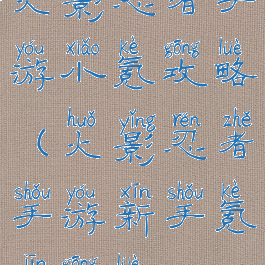 火影忍者手
yóu xiǎo kè gōng luè
游小氪攻略
huǒ yǐng rěn zhě
（火影忍者
shǒu yóu xīn shǒu kè
手游新手氪
jīn gōng luè